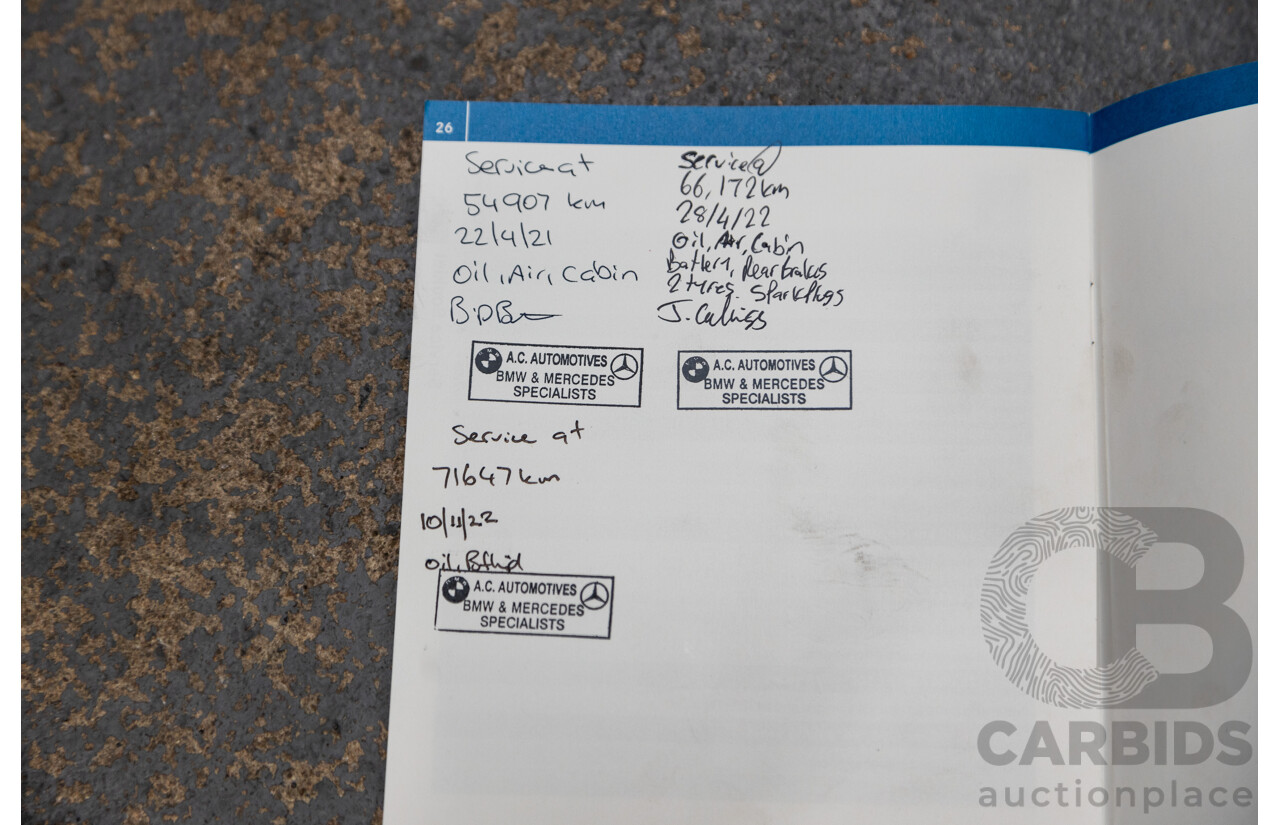 26
Service at
54907 km
22/4/21
Oil, Air, Cabin
A.C. AUTOMOTIVES
BMW & MERCEDES
SPECIALISTS
Service @
66,172km
28/4/22
Oil, Air, Cabin
Battery, Rear brakes
2 tyres. Spark plugs
J.
A.C. AUTOMOTIVES
BMW & MERCEDES
SPECIALISTS
Service at
71647km
10/11/22
oil, B.fluid
A.C. AUTOMOTIVES
BMW & MERCEDES
SPECIALISTS
CB
CARBIDS
auctionplace